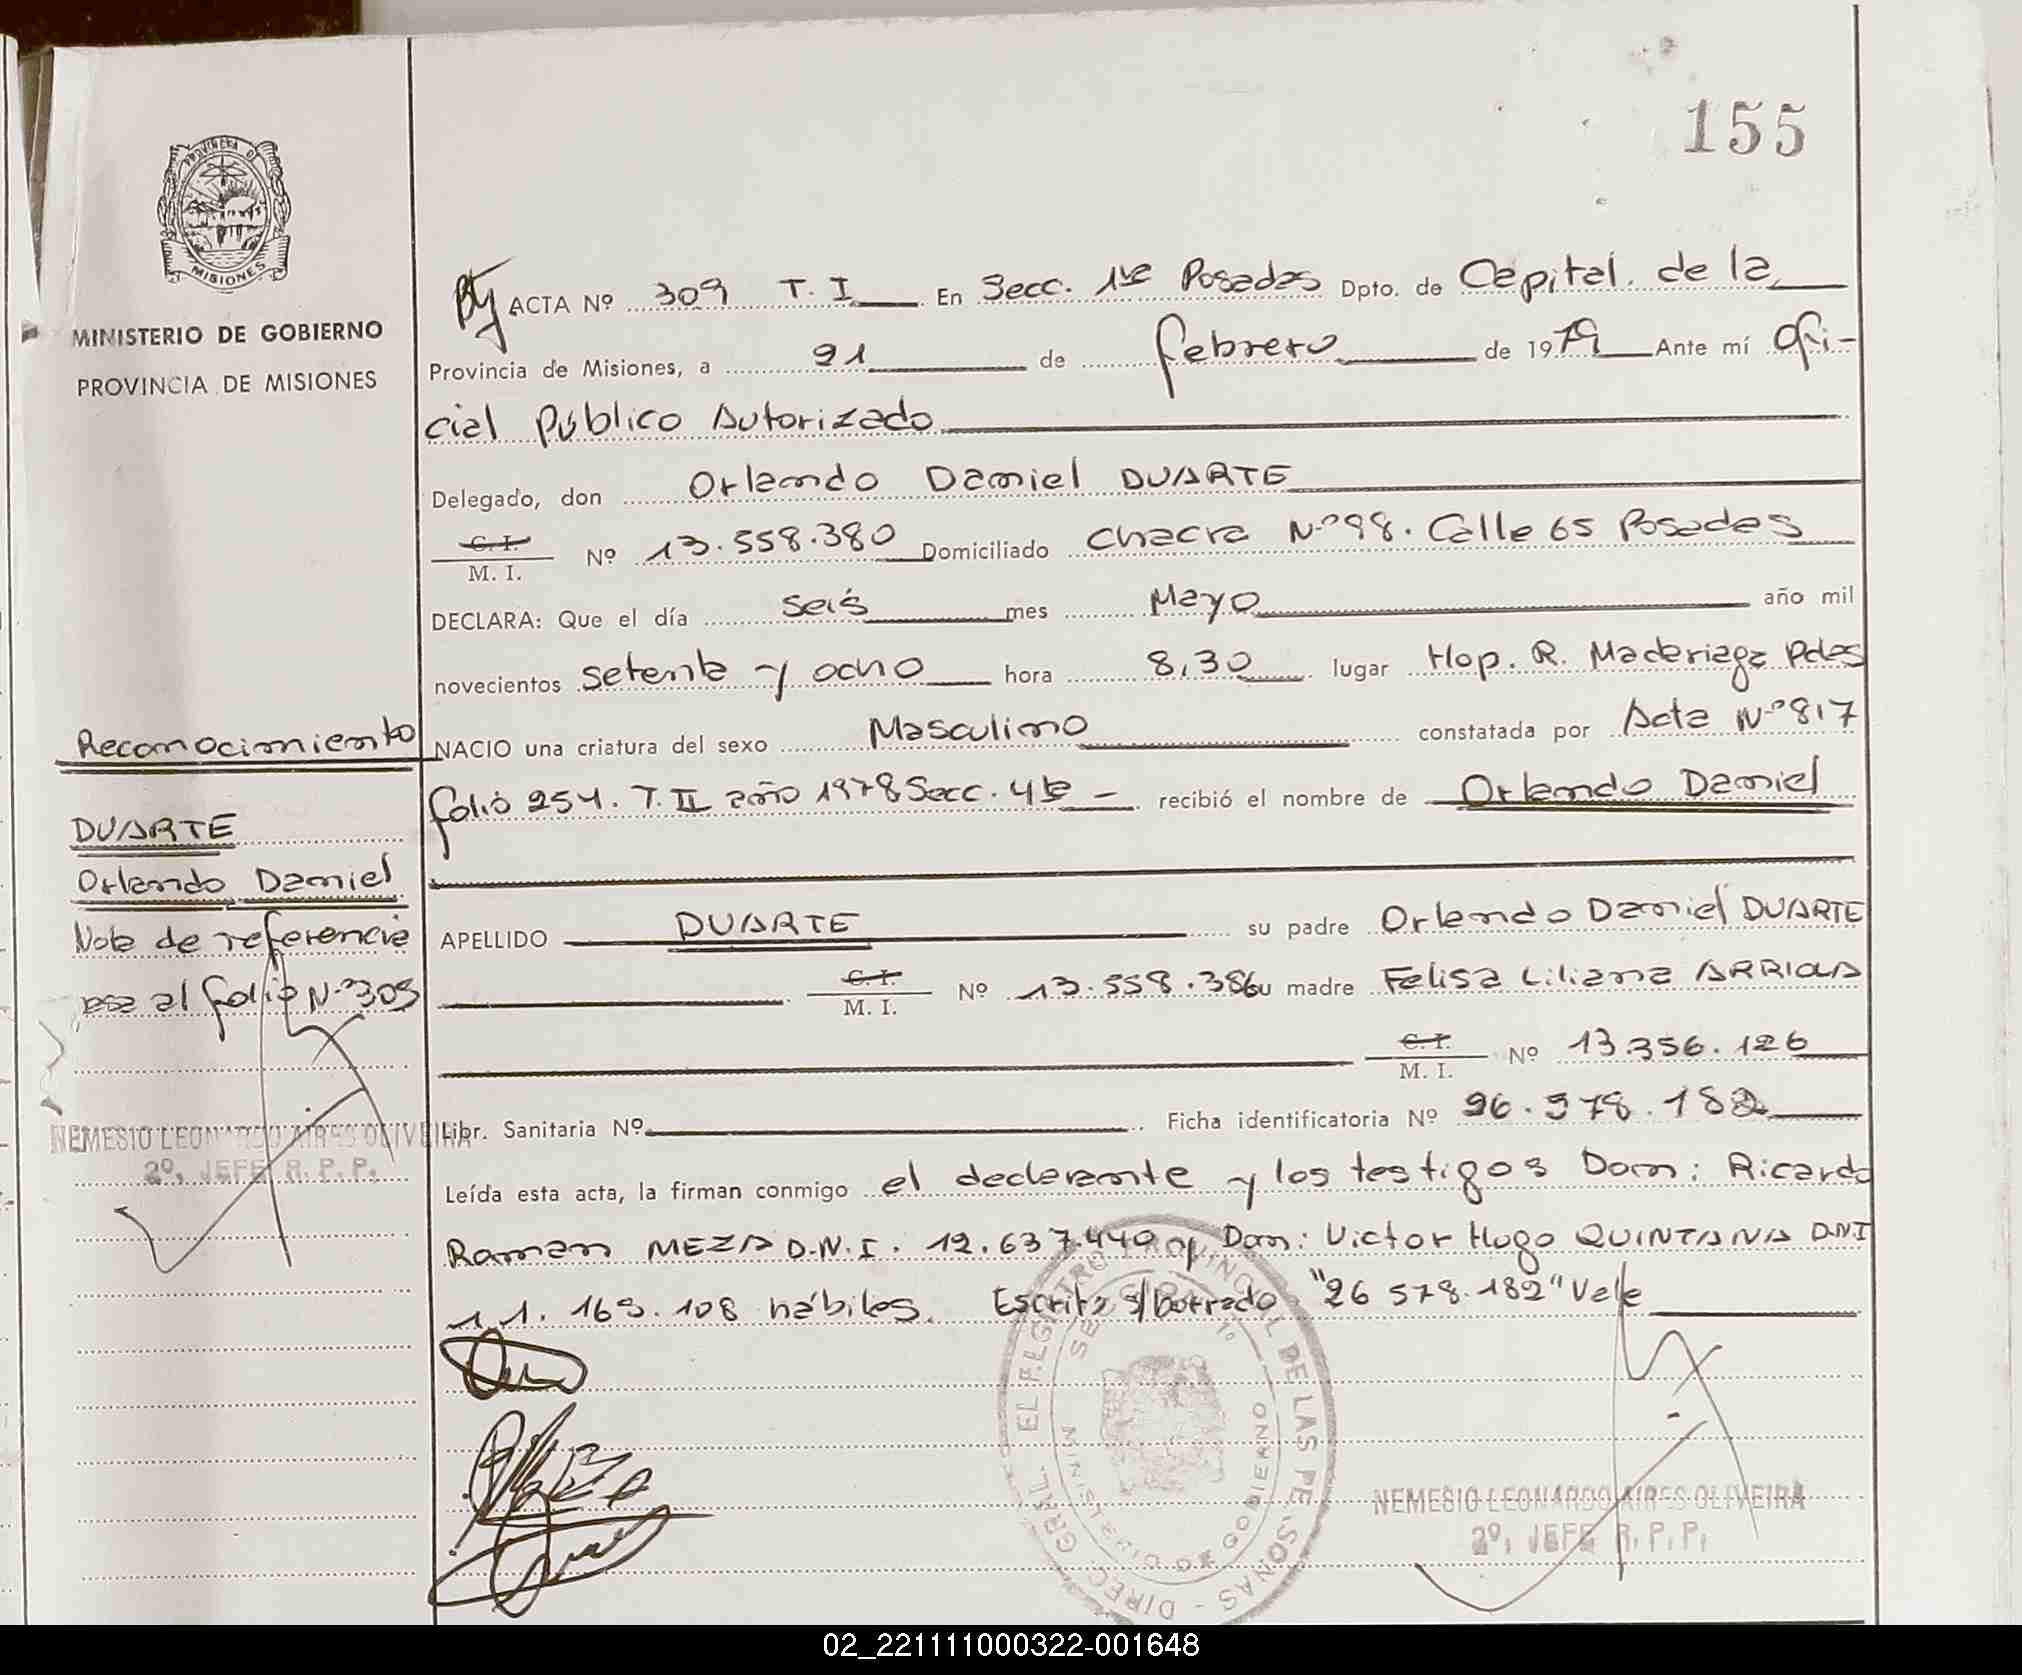 155
PROVINCIA DE
MISIONES
MINISTERIO DE GOBIERNO
PROVINCIA DE MISIONES
ACTA Nº 309 T. I En Secc. 1ra Posadas Dpto. de Capital. de la
Provincia de Misiones, a 21 de febrero de 1979 Ante mí Ofi-
cial Público Autorizado
Delegado, don Orlando Daniel DUARTE
C. I.
M. I. Nº 13.558.380 Domiciliado Chacra Nº 98. Calle 65 Posadas
DECLARA: Que el día seis mes Mayo año mil
novecientos setenta y ocho hora 8,30 lugar Hop. R. Madariaga Pdas
Reconocimiento
NACIO una criatura del sexo Masculino constatada por Acta Nº 817
folio 254. T. II año 1978 Secc. 4ta - recibió el nombre de Orlando Daniel
DUARTE
Orlando Daniel
Nota de referencia
pasa al folio Nº 305
APELLIDO DUARTE su padre Orlando Daniel DUARTE
C. I.
M. I. Nº 13.558.386 su madre Felisa Liliana ARRIOLA
C. I.
M. I. Nº 13.356.126
Libr. Sanitaria Nº Ficha identificatoria Nº 26.578.182
NEMESIO LEONARDO AIRES OLIVEIRA
2º. JEFE R. P. P.
Leída esta acta, la firman conmigo el declarante y los testigos Don: Ricardo
Ramon MEZA D.N.I. 12.637.440 y Don: Victor Hugo QUINTANA D.N.I
11.169.108 hábiles. Escrito s/borrado "26 578.182" Vale
DIREC. GRAL. EL REGISTRO PROVINCIAL DE LAS PERSONAS
MINISTERIO DE GOBIERNO
NEMESIO LEONARDO AIRES OLIVEIRA
2º. JEFE R. P. P.
02_221111000322-001648